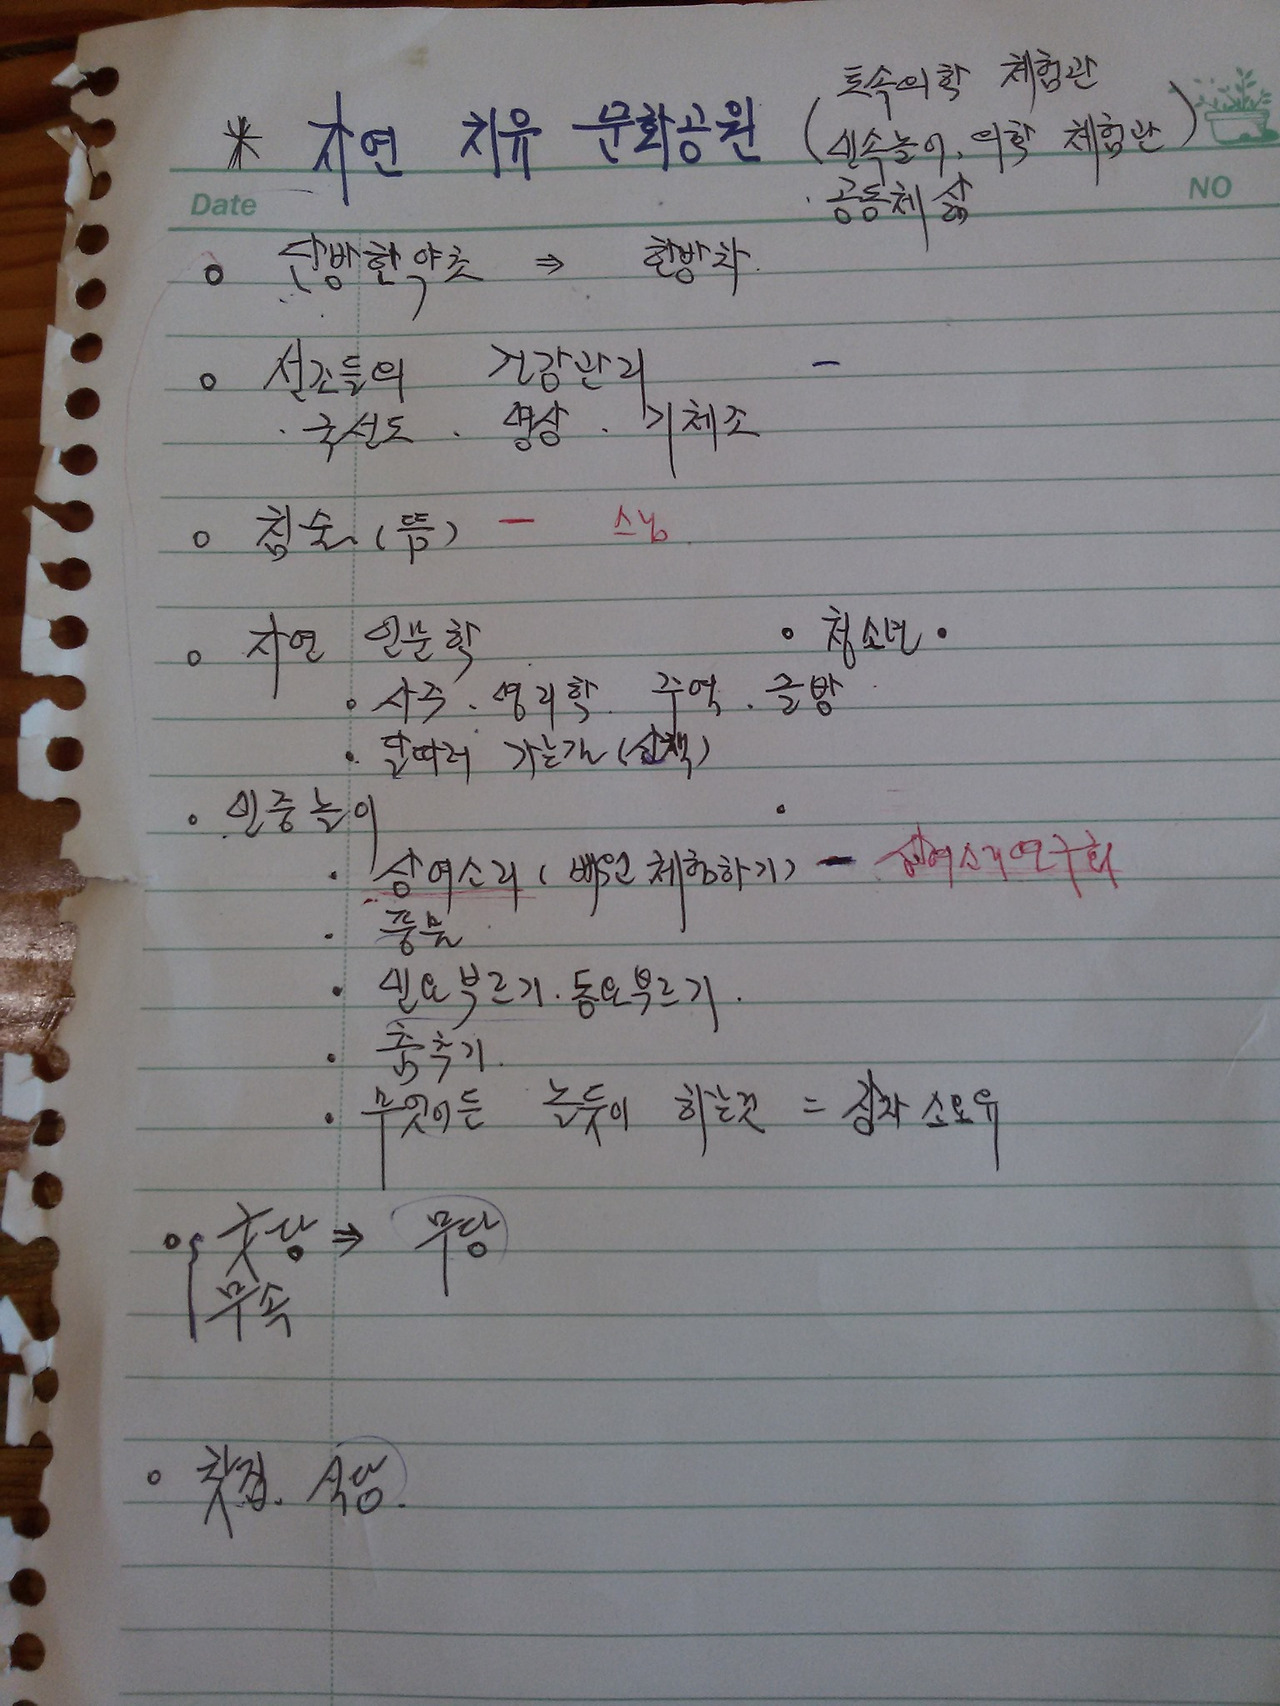 토속의학 체험관
* 자연 치유 문화공원 (민속놀이. 의학 체험관)
· 공동체 삶
Date NO
○ 단방한약초 ⇒ 한방차.
○ 선조들의 건강관리 -
· 국선도 . 명상 . 기체조
○ 침술 (뜸) - 스님
○ 자연 인문학 • 청소년 •
• 사주 . 명리학. 주역 . 글방
• 달따러 가는길 (산책)
• 민중놀이 •
• 상여소리 ( 체험하기) - 상여소리연구회
· 풍물
• 민요부르기 . 동요부르기 .
• 춤추기.
• 무엇이든 놀듯이 하는것 = 장자 소요유
○ 굿당 ⇒ 무당
무속
○ 찻집. 식당.